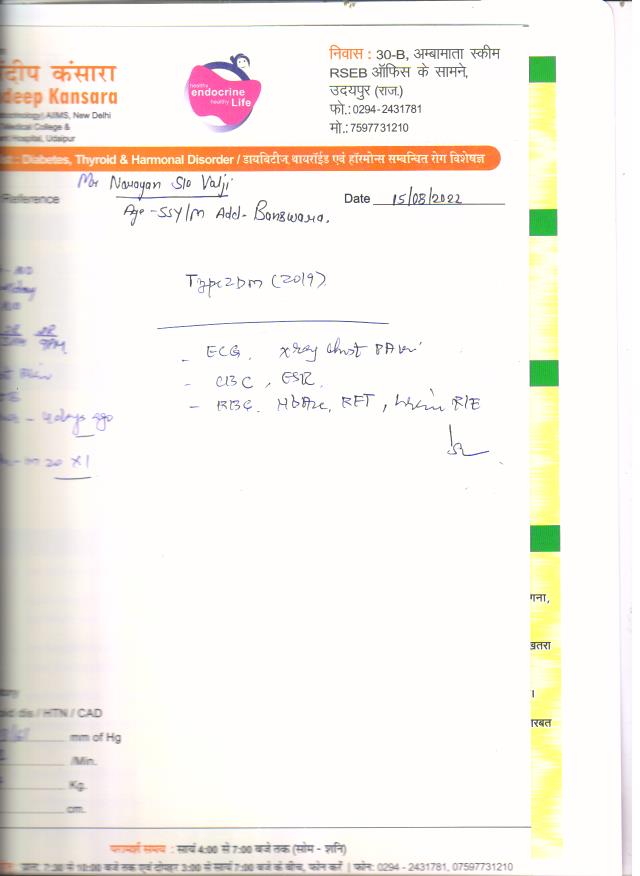 दीप कंसारा
deep Kansara
AIIMS, New Delhi
Medical College &
Hospital, Udaipur
healthy
endocrine
healthy Life
निवास : 30-B, अम्बामाता स्कीम
RSEB ऑफिस के सामने,
उदयपुर (राज.)
फो.: 0294-2431781
मो.: 7597731210
Diabetes, Thyroid & Harmonal Disorder / डायबिटीज थायरॉईड एवं हॉरमोन्स सम्बन्धित रोग विशेषज्ञ
Reference
Mr Narayan S/o Valji
Age - 55Y/M Add- Banswara.
Date 15/08/2022
Type 2 Dm (2019)
- ECG, xray chest PA
- CBC, ESR
- HbA1c, RFT,
4 days ago
20 x 1
dis / HTN / CAD
mm of Hg
/Min.
Kg.
cm.
गना,
खतरा
।
रबत
परामर्श समय : सायं 4:00 से 7:00 बजे तक (सोम - शनि)
प्रातः 7:30 से 10:00 बजे तक एवं दोपहर 3:00 से सायं 7:00 बजे के बीच, फोन करें | फोन: 0294 - 2431781, 07597731210